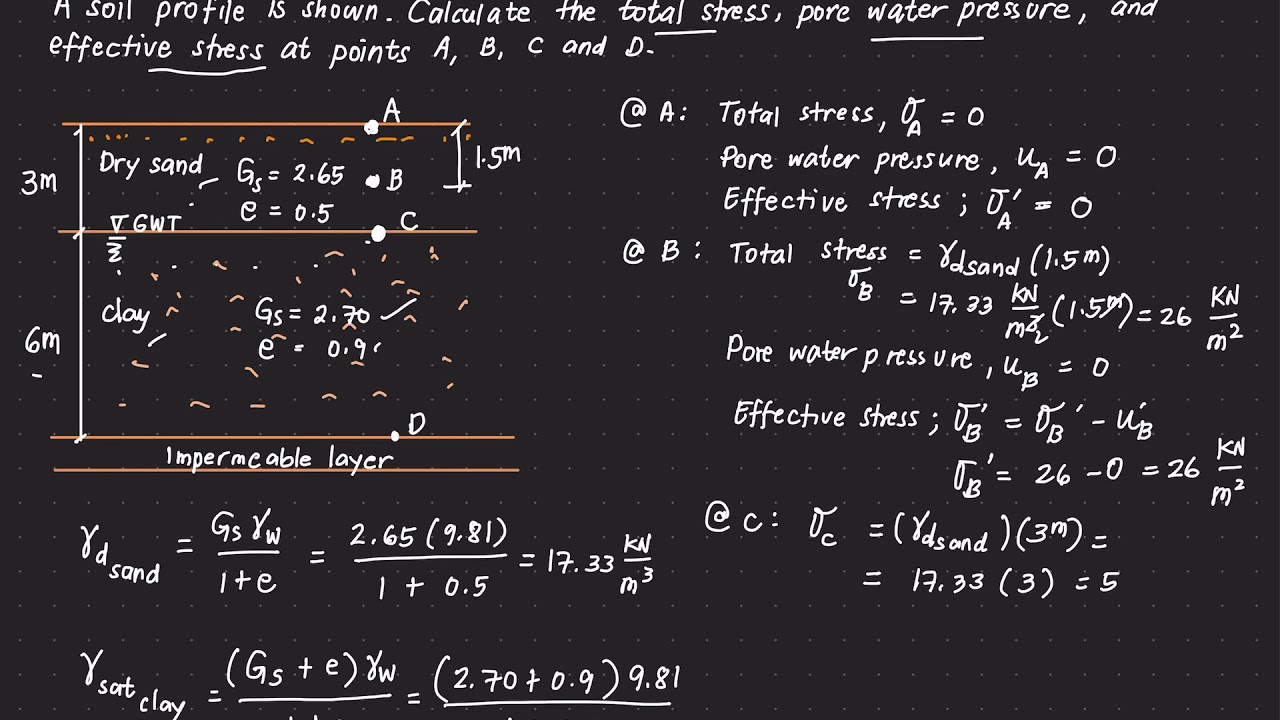 A soil profile is shown. Calculate the total stress, pore water pressure, and
effective stress at points A, B, C and D.
A
1.5m
Dry sand
Gs = 2.65
B
3m
e = 0.5
C
GWT
clay
Gs = 2.70
6m
e = 0.9
D
Impermeable layer
γd sand = Gs γw / 1+e = 2.65 (9.81) / 1 + 0.5 = 17.33 KN/m³
γsat clay = (Gs + e) γw = (2.70 + 0.9) 9.81
@ A: Total stress, σA = 0
Pore water pressure, uA = 0
Effective stress ; σA' = 0
@ B: Total stress = γdsand (1.5m)
σB = 17.33 KN/m² (1.5m) = 26 KN/m²
Pore water pressure, uB = 0
Effective stress ; σB' = σB' - uB'
σB' = 26 - 0 = 26 KN/m²
@ C: σC = (γdsand)(3m) =
= 17.33 (3) = 5